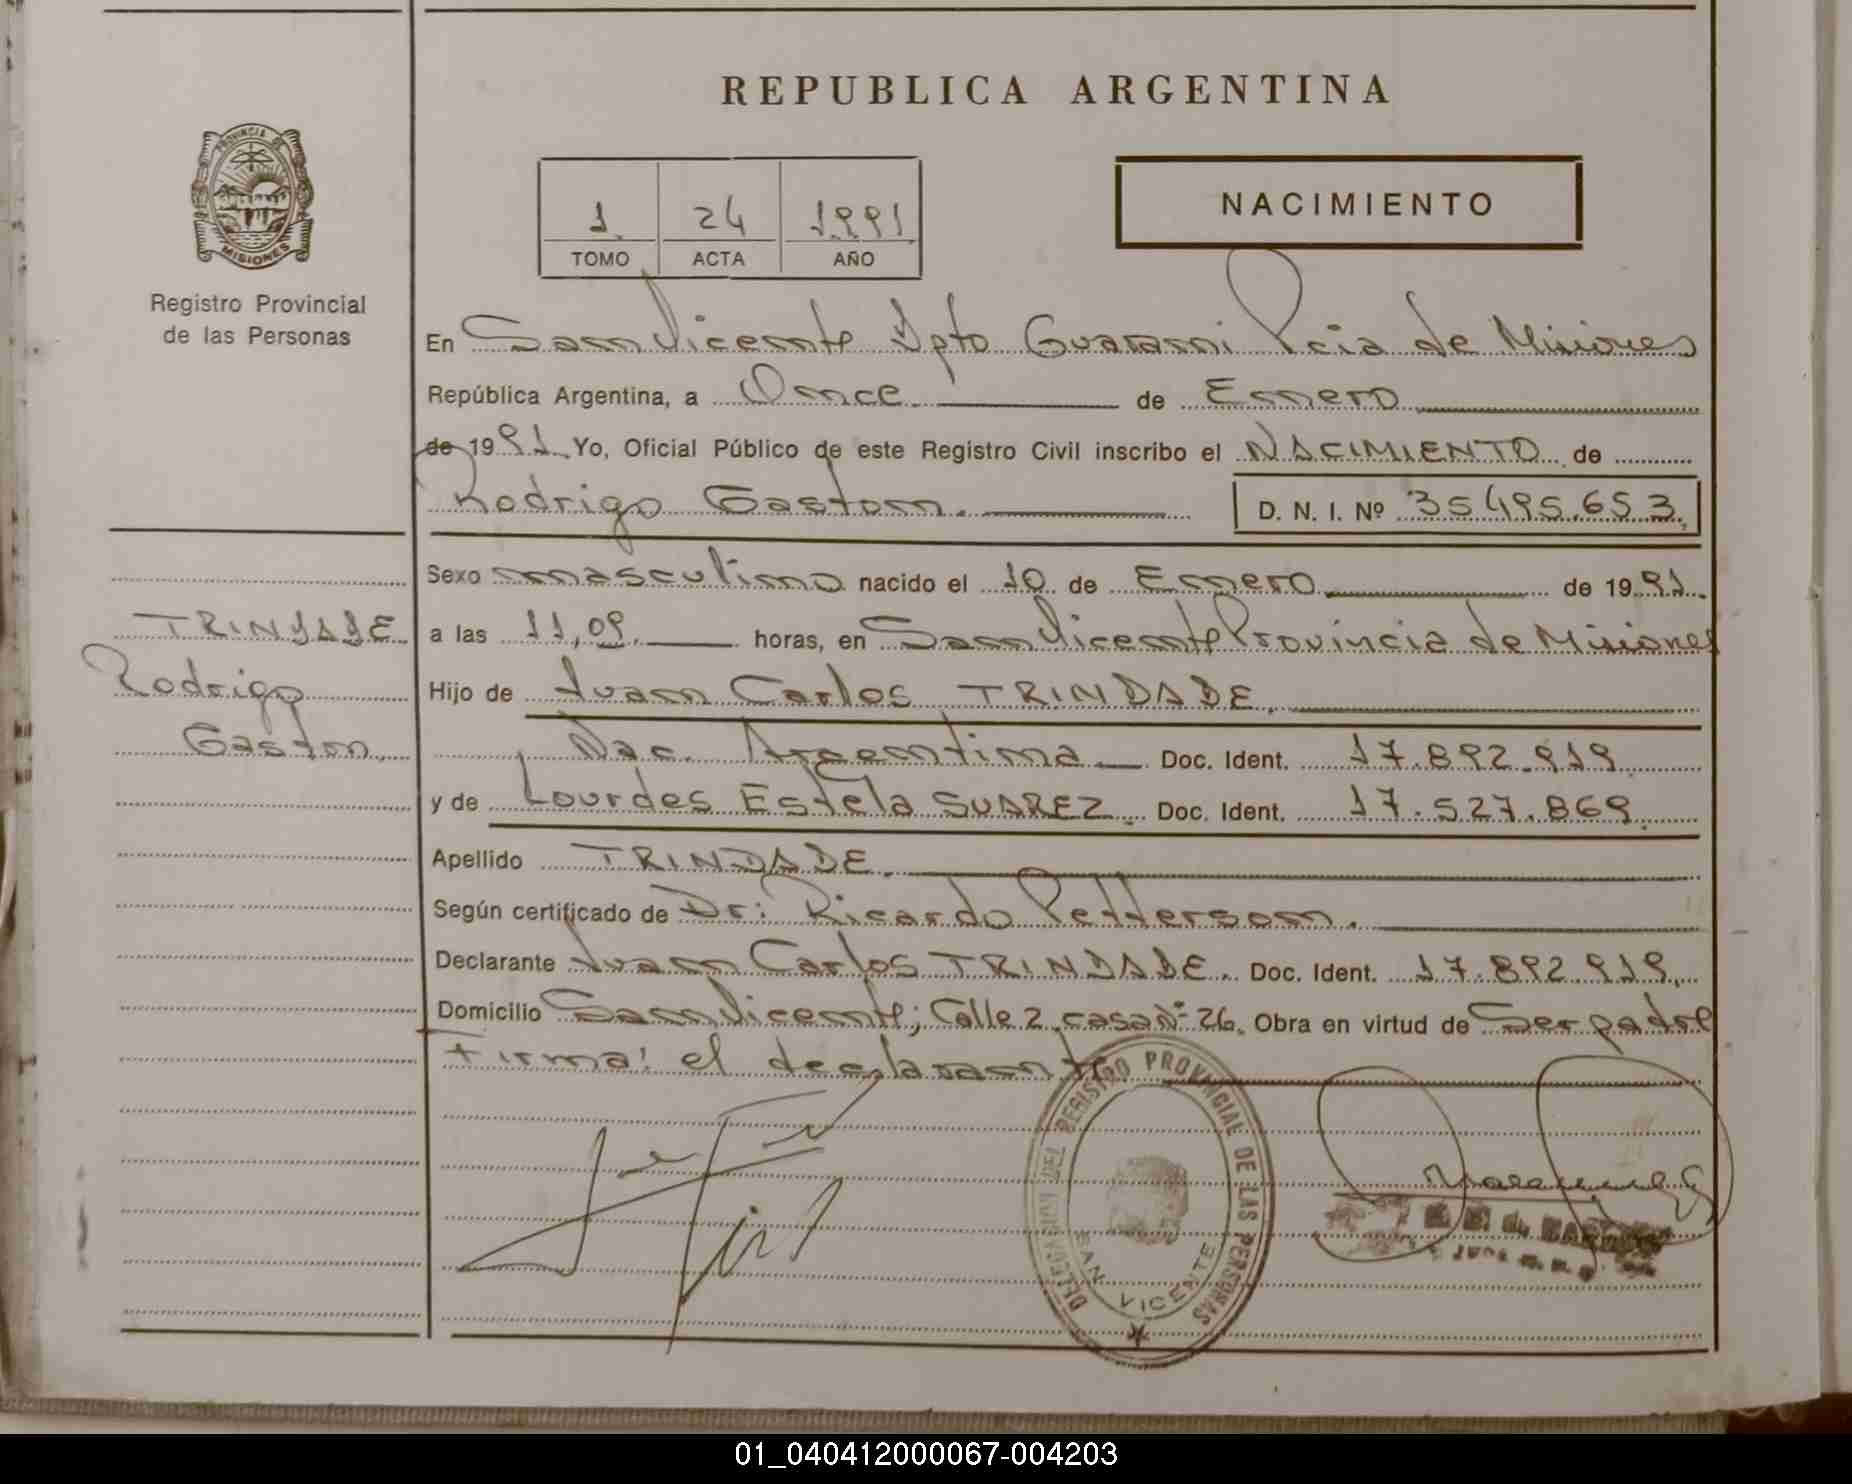 REPUBLICA ARGENTINA
PROVINCIA DE
MISIONES
Registro Provincial
de las Personas
1 24 1991
TOMO ACTA AÑO
NACIMIENTO
En San Vicente Dpto Guarani Pcia de Misiones
República Argentina, a Once de Enero
de 1991 Yo, Oficial Público de este Registro Civil inscribo el NACIMIENTO de
Rodrigo Gaston. D. N. I. Nº 35495.653.
Sexo masculino nacido el 10 de Enero de 1991.
TRINDADE
a las 11,09. horas, en San Vicente Provincia de Misiones
Rodrigo
Hijo de Juan Carlos TRINDADE.
Gaston
Nac. Argentina Doc. Ident. 17.892.919
y de Lourdes Estela SUAREZ. Doc. Ident. 17.527.869.
Apellido TRINDADE.
Según certificado de Dr: Ricardo Petterson.
Declarante Juan Carlos TRINDADE. Doc. Ident. 17.892.919.
Domicilio San Vicente; Calle 2 casa Nº 26. Obra en virtud de Ser padre
Firma: el declarante
DELEGACION DEL REGISTRO PROVINCIAL DE LAS PERSONAS
SAN VICENTE
01_040412000067-004203